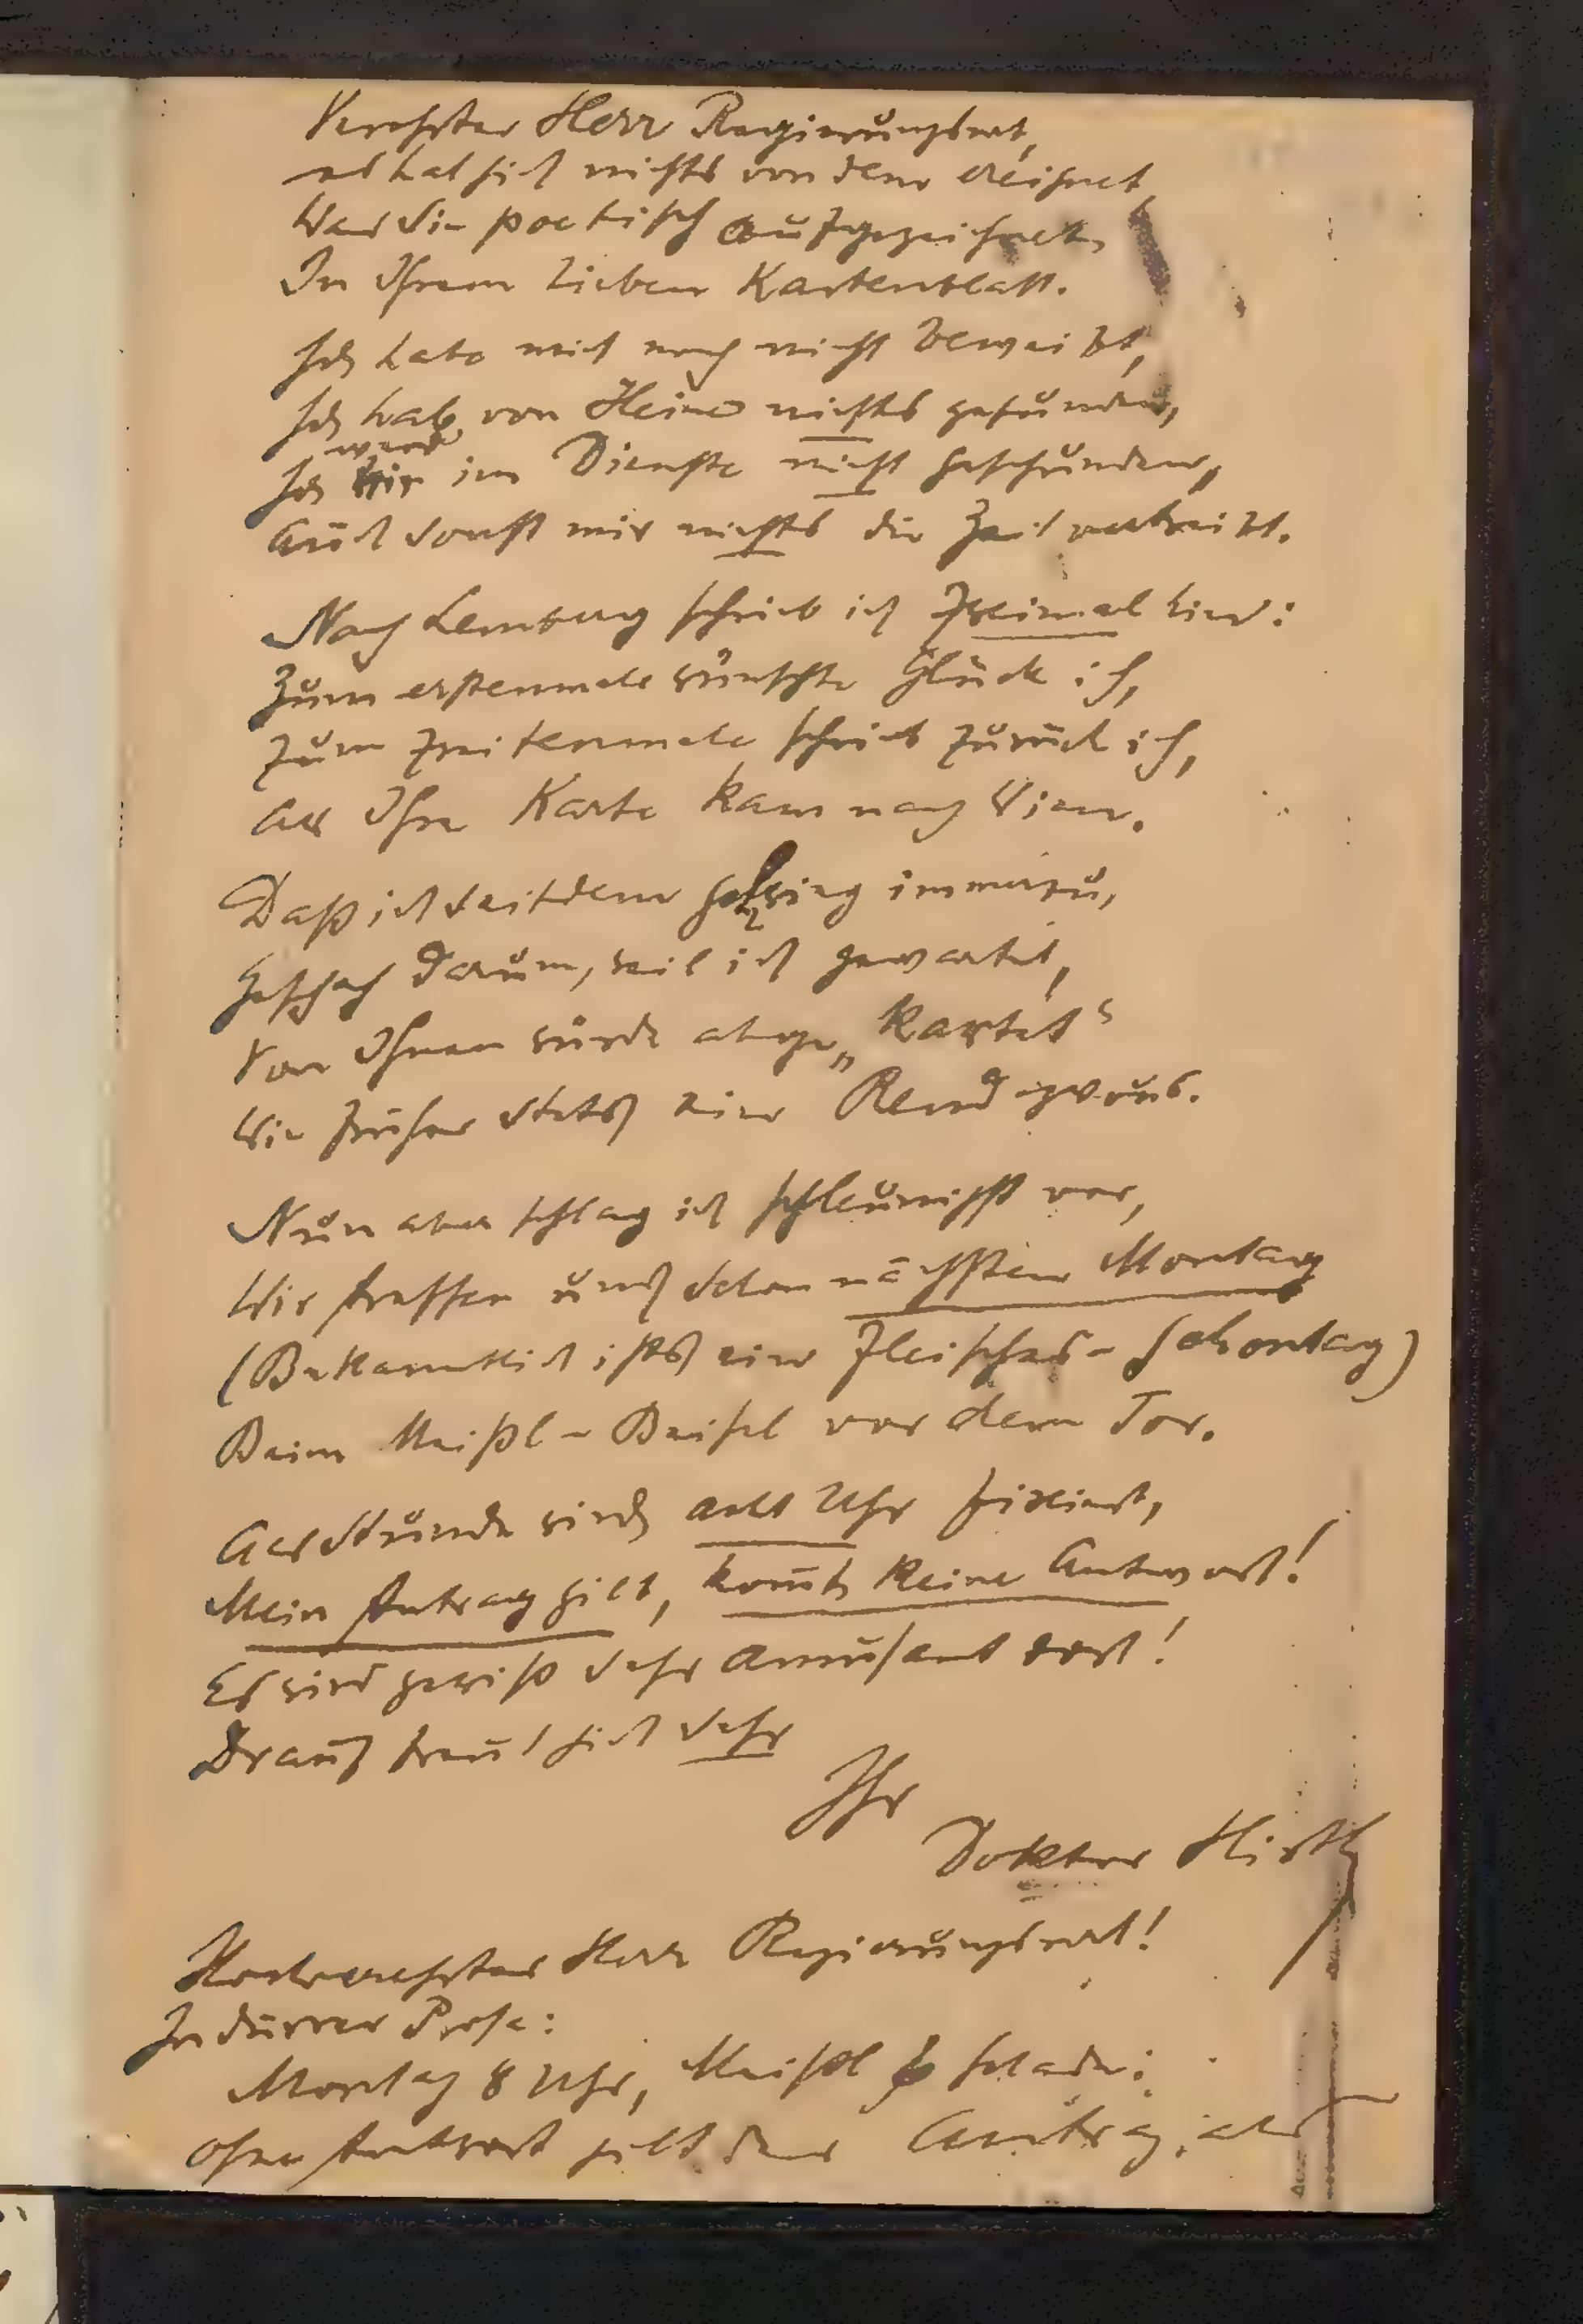 Verehrter Herr Regierungsrat,
es hat sich nichts von dem ereignet
Was Sie poetisch aufgezeichnet,
In Ihrem lieben Kartenblatt.
Ich habe mich noch nicht beweibt,
Ich hab von Heine nichts gefunden,
ward
Ich im Dienste nicht geschunden,
Auch sonst mir nichts die Zeit vertreibt.
Nach Lemberg schrieb ich zweimal hin:
Zum erstenmale wünschte Glück ich,
Zum zweitenmale schrieb zurück ich,
Als Ihre Karte kam nach Wien.
Daß ich seitdem schwieg immerzu,
Geschah darum, weil ich gewartet,
Von Ihnen würde abge„kartet“
Wie früher stets ein Rendezvous.
Nun aber schlag ich schleunigst vor,
Wir treffen uns schon nächsten Montag
(Bekanntlich ists ein Fleischer-Schontag)
Beim Meißl-Beisel vor dem Tor.
Als Stunde wird acht Uhr fixiert,
Mein Antrag gilt, kom̄t keine Antwort!
Es wird gewiß sehr amüsant dort!
Drauf freut sich sehr
Ihr
Doktor Hirth
Hochverehrter Herr Regierungsrat!
In dürrer Prosa:
Montag 8 Uhr, Meißl & Schadn;
ohne Antwort gilt der Antrag als